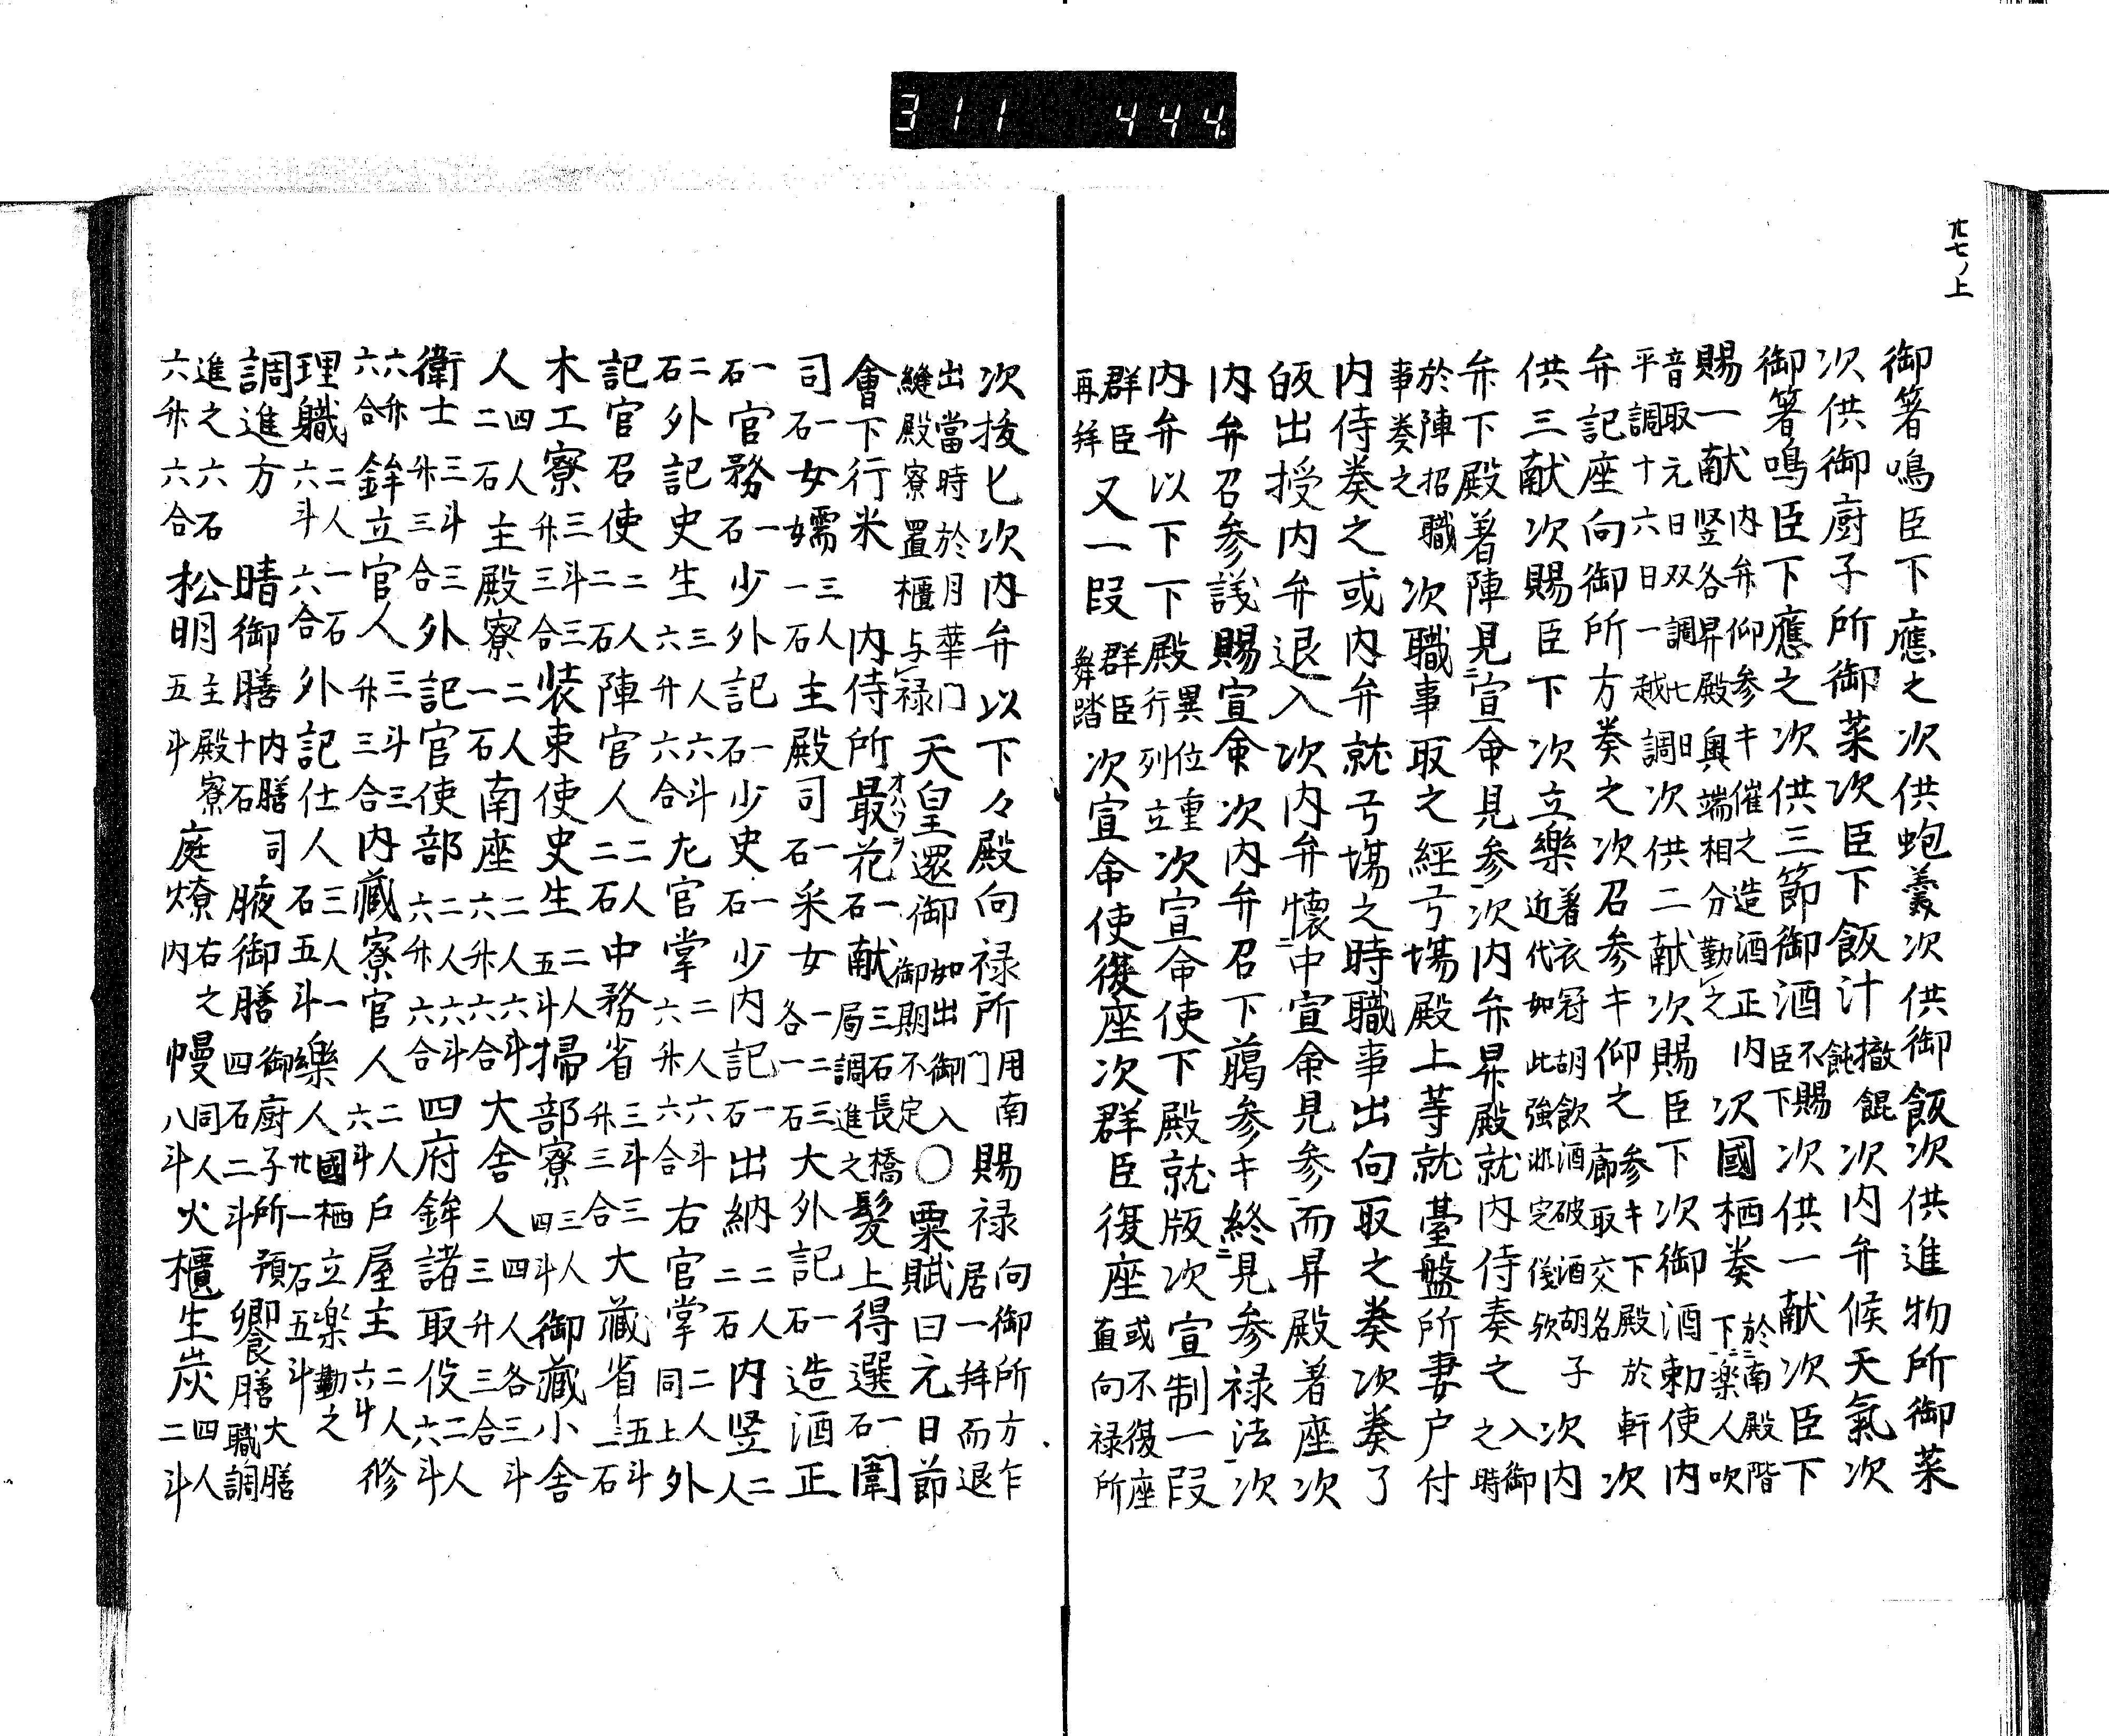 311 444.
廿七ノ上
御箸鳴臣下應之次供蚫羹次供御飯次供進物所御菜
次供御厨子所御菜次臣下飯汁撤餛飩次内弁候天氣次
御箸鳴臣下應之次供三節御酒不賜臣下次供一献次臣下
賜一献内弁仰参キ催之造酒正内竪各昇殿奥端相分勤之次國栖奏於南殿階下ニ楽人吹
音取元日双調七日平調十六日一越調次供二献次賜臣下次御酒勅使内
弁記座向御所方奏之次召参キ仰之参キ下殿於軒廊取交名次
供三献次賜臣下次立樂著衣冠胡飲酒破酒胡子近代如此強非定儀欤次内
弁下殿著陣見ニ宣命見参次内弁昇殿就内侍奏之入御之時
於陣招職事奏之次職事取之經弓塲殿上等就臺盤所妻户付
内侍奏之或内弁就弓塲之時職事出向取之奏次奏了
皈出授内弁退入次内弁懐ニ中宣命見参而昇殿著座次
内弁召参議賜宣命次内弁召下﨟参キ終ニ見参禄法次
内弁以下下殿異位重行列立次宣命使下殿就版次宣制一段
群臣再拝又一段群臣舞踏次宣命使復座次群臣復座或不復座直向禄所
次抜匕次内弁以下々殿向禄所用南門賜禄向御所方乍居一拝而退
出當時於月華门縫殿寮置櫃与禄天皇還御如出御入御期不定〇粟賦曰元日節
會下行米内侍所最花オハツヲ一石献三石長橋局調進之髪上得選一石闈
司一石女嬬三人一石主殿司一石采女一二三各一石大外記一石造酒正
一石官務一石少外記一石少史一石少内記一石出納二人二石内竪二人
二石外記史生三人六升六斗六合九官掌二人六斗六升六合右官掌二人同上外
記官召使二人二石陣官人二人二石中務省三斗三升三合大藏省五斗一石
木工寮三斗三升三合装束使史生二人五斗掃部寮三人四斗御藏小舎
人四人二石主殿寮二人一石南座二人六斗六升六合大舎人四人各三斗三升三合
衛士三斗三升三合外記官使部二人六斗六升六合四府鉾諸取伇二人六斗
六升六合鉾立官人三斗三升三合内藏寮官人二人六斗戶屋主二人六斗修
理職二人一石六斗六合外記仕人三人一石五斗樂人國栖立楽勤之廿一石五斗
調進方晴御膳内膳司十石腋御膳御厨子所預四石二斗饗膳大膳職調
進之六石六升六合松明主殿寮五斗庭燎右之内幔同人八斗火櫃生炭四人二斗